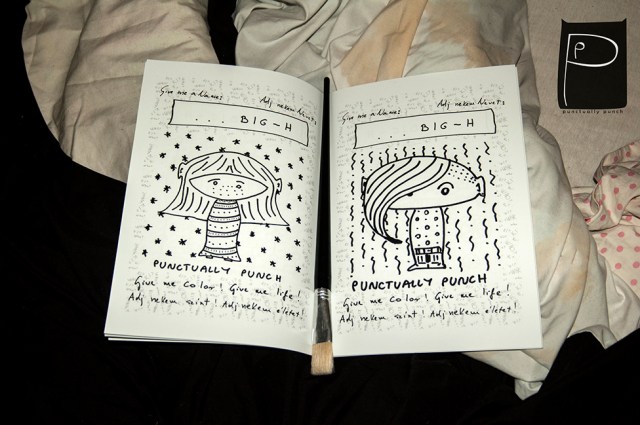 Give me a Name:
Adj nekem Nevet:
.... BIG-H
PUNCTUALLY PUNCH
Give me color! Give me life!
Adj nekem színt! Adj nekem életet!
Give me a Name:
Adj nekem Nevet:
.... BIG-H
PUNCTUALLY PUNCH
Give me color! Give me life!
Adj nekem színt! Adj nekem életet!
P
punctually punch